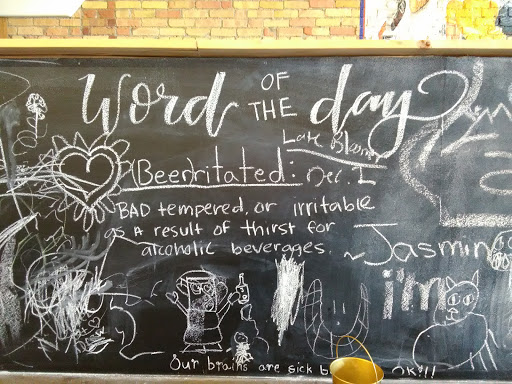 Word OF THE day
Late Bloomer
(Beerritated: Dec. 1
BAD tempered, or irritable
as a result of thirst for
alcoholic beverages.
~Jasmin
i'm
Our brains are sick b OK!!!